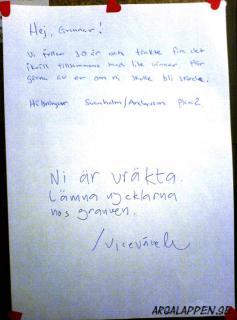 Hej, Grannar!
Vi fyller 30 år och tänkte fira det
ikväll tillsammans med lite vänner. Hör
gärna av er om ni skulle bli störda.
Hälsningar Svanholm/Andersson plan 2
Ni är vräkta.
Lämna nycklarna
hos grannen.
/Vicevärden
ARGALAPPEN.SE